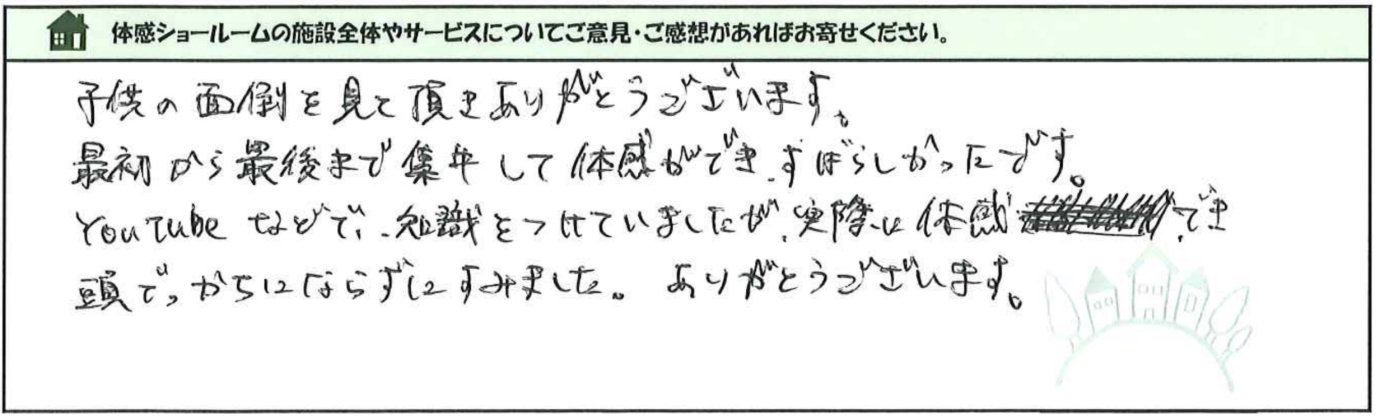 体感ショールームの施設全体やサービスについてご意見・ご感想があればお寄せください。
子供の面倒を見て頂きありがとうございます。
最初から最後まで集中して体感ができ、すばらしかったです。
YouTubeなどで、知識をつけていましたが、実際に体感でき
頭でっかちにならずにすみました。ありがとうございます。